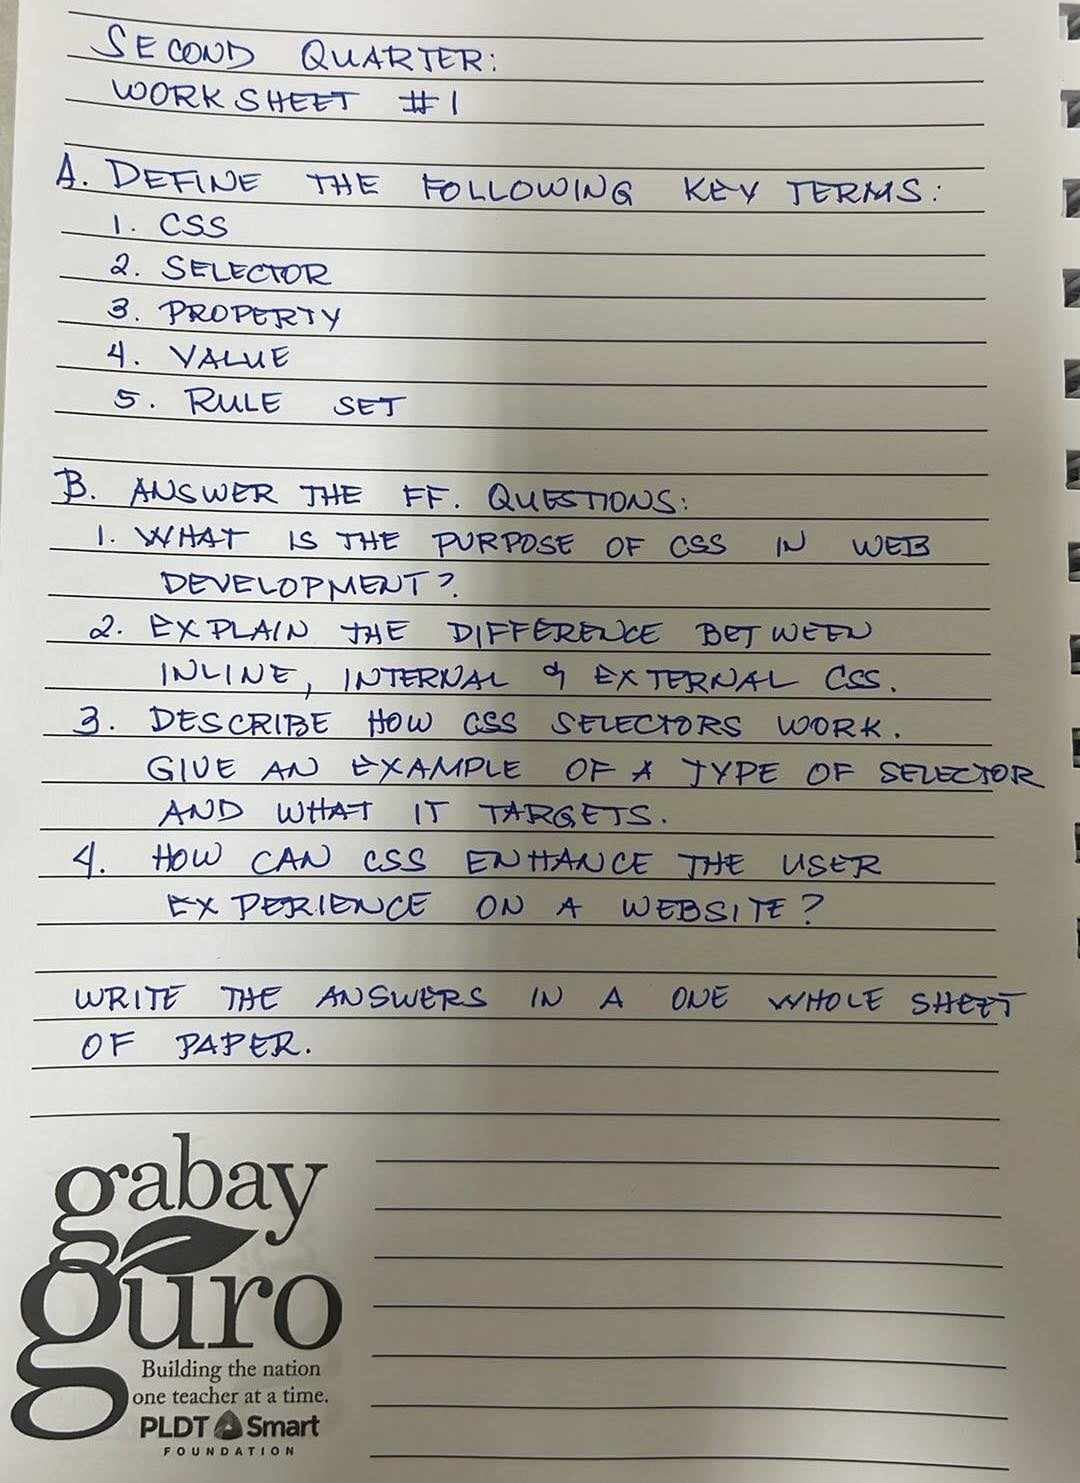 SECOND QUARTER:
WORKSHEET #1
A. DEFINE THE FOLLOWING KEY TERMS:
1. CSS
2. SELECTOR
3. PROPERTY
4. VALUE
5. RULE SET
B. ANSWER THE FF. QUESTIONS:
1. WHAT IS THE PURPOSE OF CSS IN WEB
DEVELOPMENT?
2. EXPLAIN THE DIFFERENCE BETWEEN
INLINE, INTERNAL & EXTERNAL CSS.
3. DESCRIBE HOW CSS SELECTORS WORK.
GIVE AN EXAMPLE OF A TYPE OF SELECTOR
AND WHAT IT TARGETS.
4. HOW CAN CSS ENHANCE THE USER
EXPERIENCE ON A WEBSITE?
WRITE THE ANSWERS IN A ONE WHOLE SHEET
OF PAPER.
gabay
guro
Building the nation
one teacher at a time.
PLDT Smart
FOUNDATION